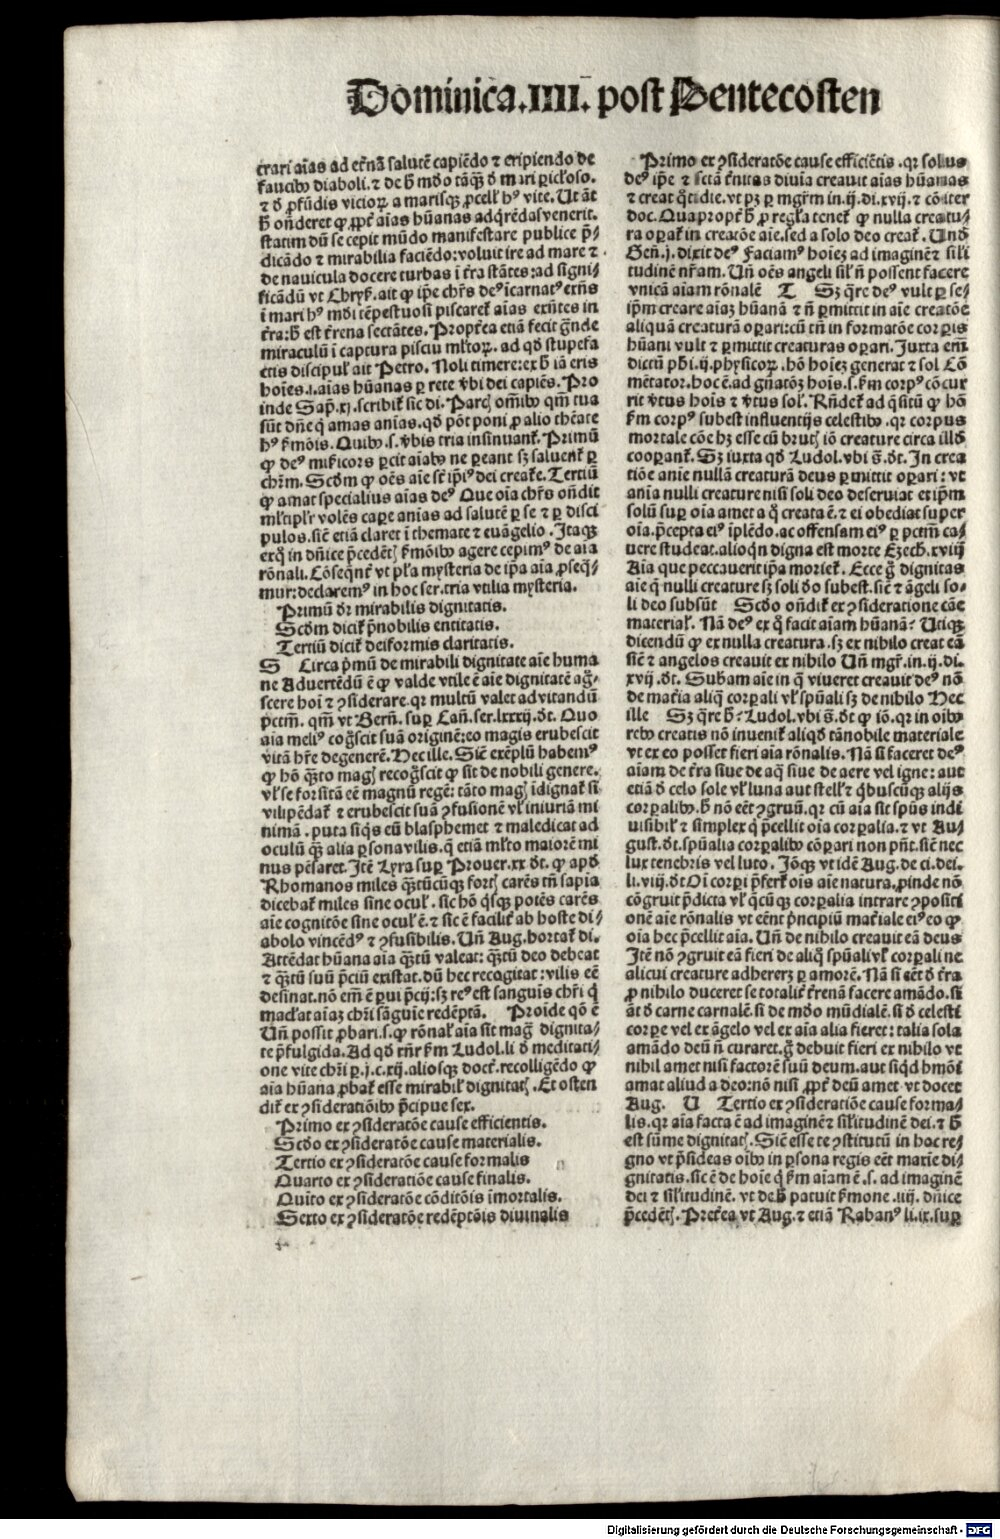 Dominica.IIII. post Pentecosten
trari aīas ad et̄nā salutē capiēdo ⁊ eripiendo de
faucibꝰ diaboli. ⁊ de h̄ mō tāqȝ ō mari ꝑicl'oso.
⁊ ō ꝓfūdis vicioꝝ a marisqȝ ꝓcell' hꝰ vite. Ut āt
h̄ onderet ꝙ ꝓpt̄ aīas hūanas adqrēdas venerit.
statim dū se cepit mūdo manifestare publice p̄⸗
dicādo ⁊ mirabilia faciēdo: voluit ire ad mare ⁊
de nauicula docere turbas ī t̄ra stātes: ad signi⸗
ficādū vt Chrys. ait ꝙ ip̄e chr̄s deꝰ īcarnatꝰ exn̄s
ī mari hꝰ mōi tēpestuosi piscaret᷑ aīas exn̄tes in
t̄ra: h̄ est t̄rena sectātes. Propt̄ea etiā fecit grāde
miraculū ī captura pisciū ml'toꝝ. ad qd̄ stupefa
ctis discipul' ait Petro. Noli timere: ex h̄ iā eris
hoīes .i. aīas hūanas ꝑ rete v̄bi dei capiēs. Pro
inde Sap̄. xj. scribit᷑ sic di. Parcis om̄ibꝰ qm̄ tua
sūt dn̄e q̄ amas anīas. qd̄ pōt poni ꝓ alio theāte
hꝰ ẜmōis. Quibꝰ .s. v̄bis tria insinuant᷑. Primū
ꝙ deꝰ mīcors ꝑcit aīabꝰ ne ꝑeant sȝ saluent᷑ ꝑ
chr̄m. Scdm̄ ꝙ oēs aīe st̄ ip̄iꝰ dei create. Tertiū
ꝙ amat specialius aīas deꝰ Que oīa chr̄s on̄dit
ml'tipl'r volēs capꝑe anīas ad salutē ꝑ se ⁊ ꝑ disci
pulos. sic̄ etiā claret ī themate ⁊ euāgelio. Itaqȝ
exq̄ in dn̄ice p̄cedēt ẜmōibꝰ agere cepimꝰ de aīa
rōnali. Cōseq̄nt̄ vt pl'a mysteria de ip̄a aīa ꝓseq̄⸗
mur: declaremꝰ in hoc ser. tria vtilia mysteria.
Primū dr̄ mirabilis dignitatis.
Scdm̄ dicit᷑ p̄nobilis entitatis.
Tertiū dicit᷑ deiformis claritatis.
S Circa p̄mū de mirabili dignitate aīe huma
ne Aduertēdū ē ꝙ valde vtile ē aīe dignitatē ag̃⸗
scere hoī ⁊ ꝯsiderare. qr multū valet ad vitandū
pctm̄. qm̄ vt Bern̄. suꝑ Can̄. ser. lxxxij. dt. Quo
aīa meliꝰ cog̃scit suā originē: eo magis erubescit
vitā hr̄e degenerē. Hec ille. Sic̄ exēplū habemꝰ
ꝙ hō q̄ȝto magis recog̃scit ꝙ sit de nobili genere.
vl' se forsitā eē magnū regē: tāto magis īdignat᷑ si
vilipēdat᷑ ⁊ erubescit suā ꝯfusionē vl' iniuriā mi
nimā. puta siq̄s eū blasphemet ⁊ maledicat ad
oculū qȝ alia ꝑsona vilis. q̄ etiā ml'to maiorē mi
nus pēsaret. Itē Lyra suꝑ Prouer. xx dt. ꝙ apd̄
Rhomanos miles q̄ȝtūcūqȝ fortis carēs tn̄ sapīa
dicebat᷑ miles sine ocul'. sic hō q̄sqȝ potēs carēs
aīe cognitōe sine ocul' ē. ⁊ sic ē facilit᷑ ab hoste di⸗
abolo vincēdꝰ ⁊ ꝯfusibilis. Un̄ Aug. hortat᷑ di.
Attēdat hūana aīa q̄ȝtū valeat: q̄ȝtū deo debeat
⁊ q̄ȝtū suū p̄ciū existat. dū hec recogitat: vilis eē
desinat. nō em̄ ē ꝑui p̄cij: sȝ reꝰ est sanguis chr̄i q̄
mactat aīaȝ chr̄i sāguīe redēptā. Proīde qō ē
Un̄ possit ꝓbari. s. ꝙ rōnal' aīa sit mag̃ dignita⸗
te p̄fulgida. Ad qd̄ rn̄r ẜm Ludol. li ō meditati⸗
one vite chr̄i ꝑ. j. c. xij. aliosqȝ doct᷑. recolligēdo ꝙ
aīa hūana ꝓbat᷑ esse mirabil' dignitatis. Et osten
dit᷑ ex ꝯsideratiōibꝰ p̄cipue sex.
Primo ex ꝯsideratōe cause efficientis.
Scdo ex ꝯsideratōe cause materialis.
Tertio ex ꝯsideratōe cause formalis
Quarto ex ꝯsideratiōe cause finalis.
Quīto ex ꝯsideratōe cōditōis īmortalis.
Sexto ex ꝯsideratōe redēptōis diuinalis
Primo ex ꝯsideratōe cause efficiētis. qr solus
deꝰ ip̄e ⁊ sctā t̄nitas diuīa creauit aīas hūanas
⁊ creat q̄tidie. vt pȝ ꝑ mgr̄m in. ij. di. xvij. ⁊ cōiter
doc. Quapropt̄ h̄ ꝓ regl'a tenet᷑ ꝙ nulla creatu⸗
ra oꝑat᷑ in creatōe aīe. sed a solo deo creat᷑. Und̄
Gen̄. j. dixit deꝰ Faciamꝰ hoīeȝ ad imaginē ⁊ sil'i
tudinē nr̄am. Un̄ oēs angeli sil' n̄ possent facere
vnicā aīam rōnalē T Sȝ q̄re deꝰ vult ꝑ se⸗
ip̄m creare aīaȝ hūanā ⁊ n̄ ꝑmittit in aīe creatōe
aliquā creaturā oꝑari: cū tn̄ in formatōe corꝑis
hūani vult ⁊ ꝑmittit creaturas oꝑari. Juxta em̄
dictū phi. ij. physicoꝝ. hō hoīeȝ generat ⁊ sol Cō
mētator. hoc ē. ad gn̄atōȝ hois. s. ẜm corpꝰ cōcur
rit v̄tus hois ⁊ v̄tus sol'. Rn̄det᷑ ad q̄sitū ꝙ hō
ẜm corpꝰ subest influentijs celestibꝰ. qr corpus
mortale cōe hȝ esse cū brutis iō creature circa illd̄
cooꝑant᷑. Sȝ iuxta qd̄ Ludol. vbi s̄. dt. In crea
tiōe anīe nullā creaturā deus ꝑmittit oꝑari: vt
anīa nulli creature nisi soli deo deseruiat et ip̄m
solū suꝑ oīa amet a q̄ creata ē. ⁊ ei obediat super
oīa. p̄cepta eiꝰ īplēdo. ac offensam eiꝰ ꝑ pctm̄ ca⸗
uere studeat. alioq̄n digna est morte Ezech. xviij
Aīa que peccauerit ip̄a moriet᷑. Ecce g̃ dignitas
aīe q̄ nulli creature sȝ soli dō subest. sic̄ ⁊ āgeli so⸗
li deo subsūt Scdo on̄dit᷑ ex ꝯsideratione cāe
material'. Nā deꝰ ex q̄ facit aīam hūanā? Utiqȝ
dicendū ꝙ ex nulla creatura. sȝ ex nihilo creat eā
sic̄ ⁊ angelos creauit ex nihilo Un̄ mgr̄. in. ij. di.
xvij. dt. Subām aīe in q̄ viueret creauit deꝰ nō
de mat̄ia aliq̄ corꝑali vl' sp̄uali sȝ de nihilo Hec
ille Sȝ q̄re h̄? Ludol. vbi s̄. dt ꝙ iō. qr in oibꝰ
rebꝰ creatis nō inuenit᷑ aliqd̄ tā nobile materiale
vt ex eo posset fieri aīa rōnalis. Nā si faceret deꝰ
aīam de t̄ra siue de aq̄ siue de aere vel igne: aut
etiā ō celo sole vl' luna aut stell' ⁊ q̄buscūqȝ alijs
corꝑalibꝰ. h̄ nō eēt ꝯgruū. qr cū aīa sit sp̄us indi
uisibil' ⁊ simplex q̄ p̄cellit oīa corꝑalia. ⁊ vt Au⸗
gust. dt. sp̄ualia corꝑalibꝰ cōꝑari non pn̄t. sic̄ nec
lux tenebris vel luto. Iōqȝ vt idē Aug. de ci. dei.
li. viij. dt Oī corꝑi p̄fert᷑ ois aīe natura. ꝓinde nō
cōgruit p̄dicta vl' q̄cūqȝ corꝑalia intrare ꝯpositi
onē aīe rōnalis vt eēnt p̄ncipiū mat̄iale eiꝰ eo ꝙ
oīa hec p̄cellit aīa. Un̄ de nihilo creauit eā deus
Itē nō ꝯgruit eā fieri de aliq̄ sp̄uali vl' corꝑali ne
alicui creature adhereȝ ꝑ amorē. Nā si eēt ō t̄ra
ꝓ nihilo duceret se totalit᷑ t̄renā facere amādo. si
āt ō carne carnalē. si de mōdo mūdialē. si ō celesti
corꝑe vel ex āgelo vel ex aīa alia fieret: talia sola
amādo deū n̄ curaret. g̃ debuit fieri ex nihilo vt
nihil amet nisi factorē suū deum. aut siqd̄ hmōi
amat aliud a deo: nō nisi ꝓpt᷑ deū amet vt docet
Aug. U Tertio ex ꝯsideratiōe cause forma⸗
lis. qr aīa facta ē ad imaginē ⁊ sil'itudinē dei. ⁊ h̄
est sūme dignitatis. Sic̄ esse te ꝯstitutū in hoc re⸗
gno vt p̄sideas oibꝰ in ꝑsona regis eēt maxīe di⸗
gnitatis. sic ē de hoīe q̄ ẜm aīam ē. s. ad imaginē
dei ⁊ sil'itudinē. vt de h̄ patuit ẜmone. iij. dn̄ice
p̄cedētis. Pret̄ea vt Aug. ⁊ etiā Rabanꝰ li. ix. suꝑ
Digitalisierung gefördert durch die Deutsche Forschungsgemeinschaft - DFG